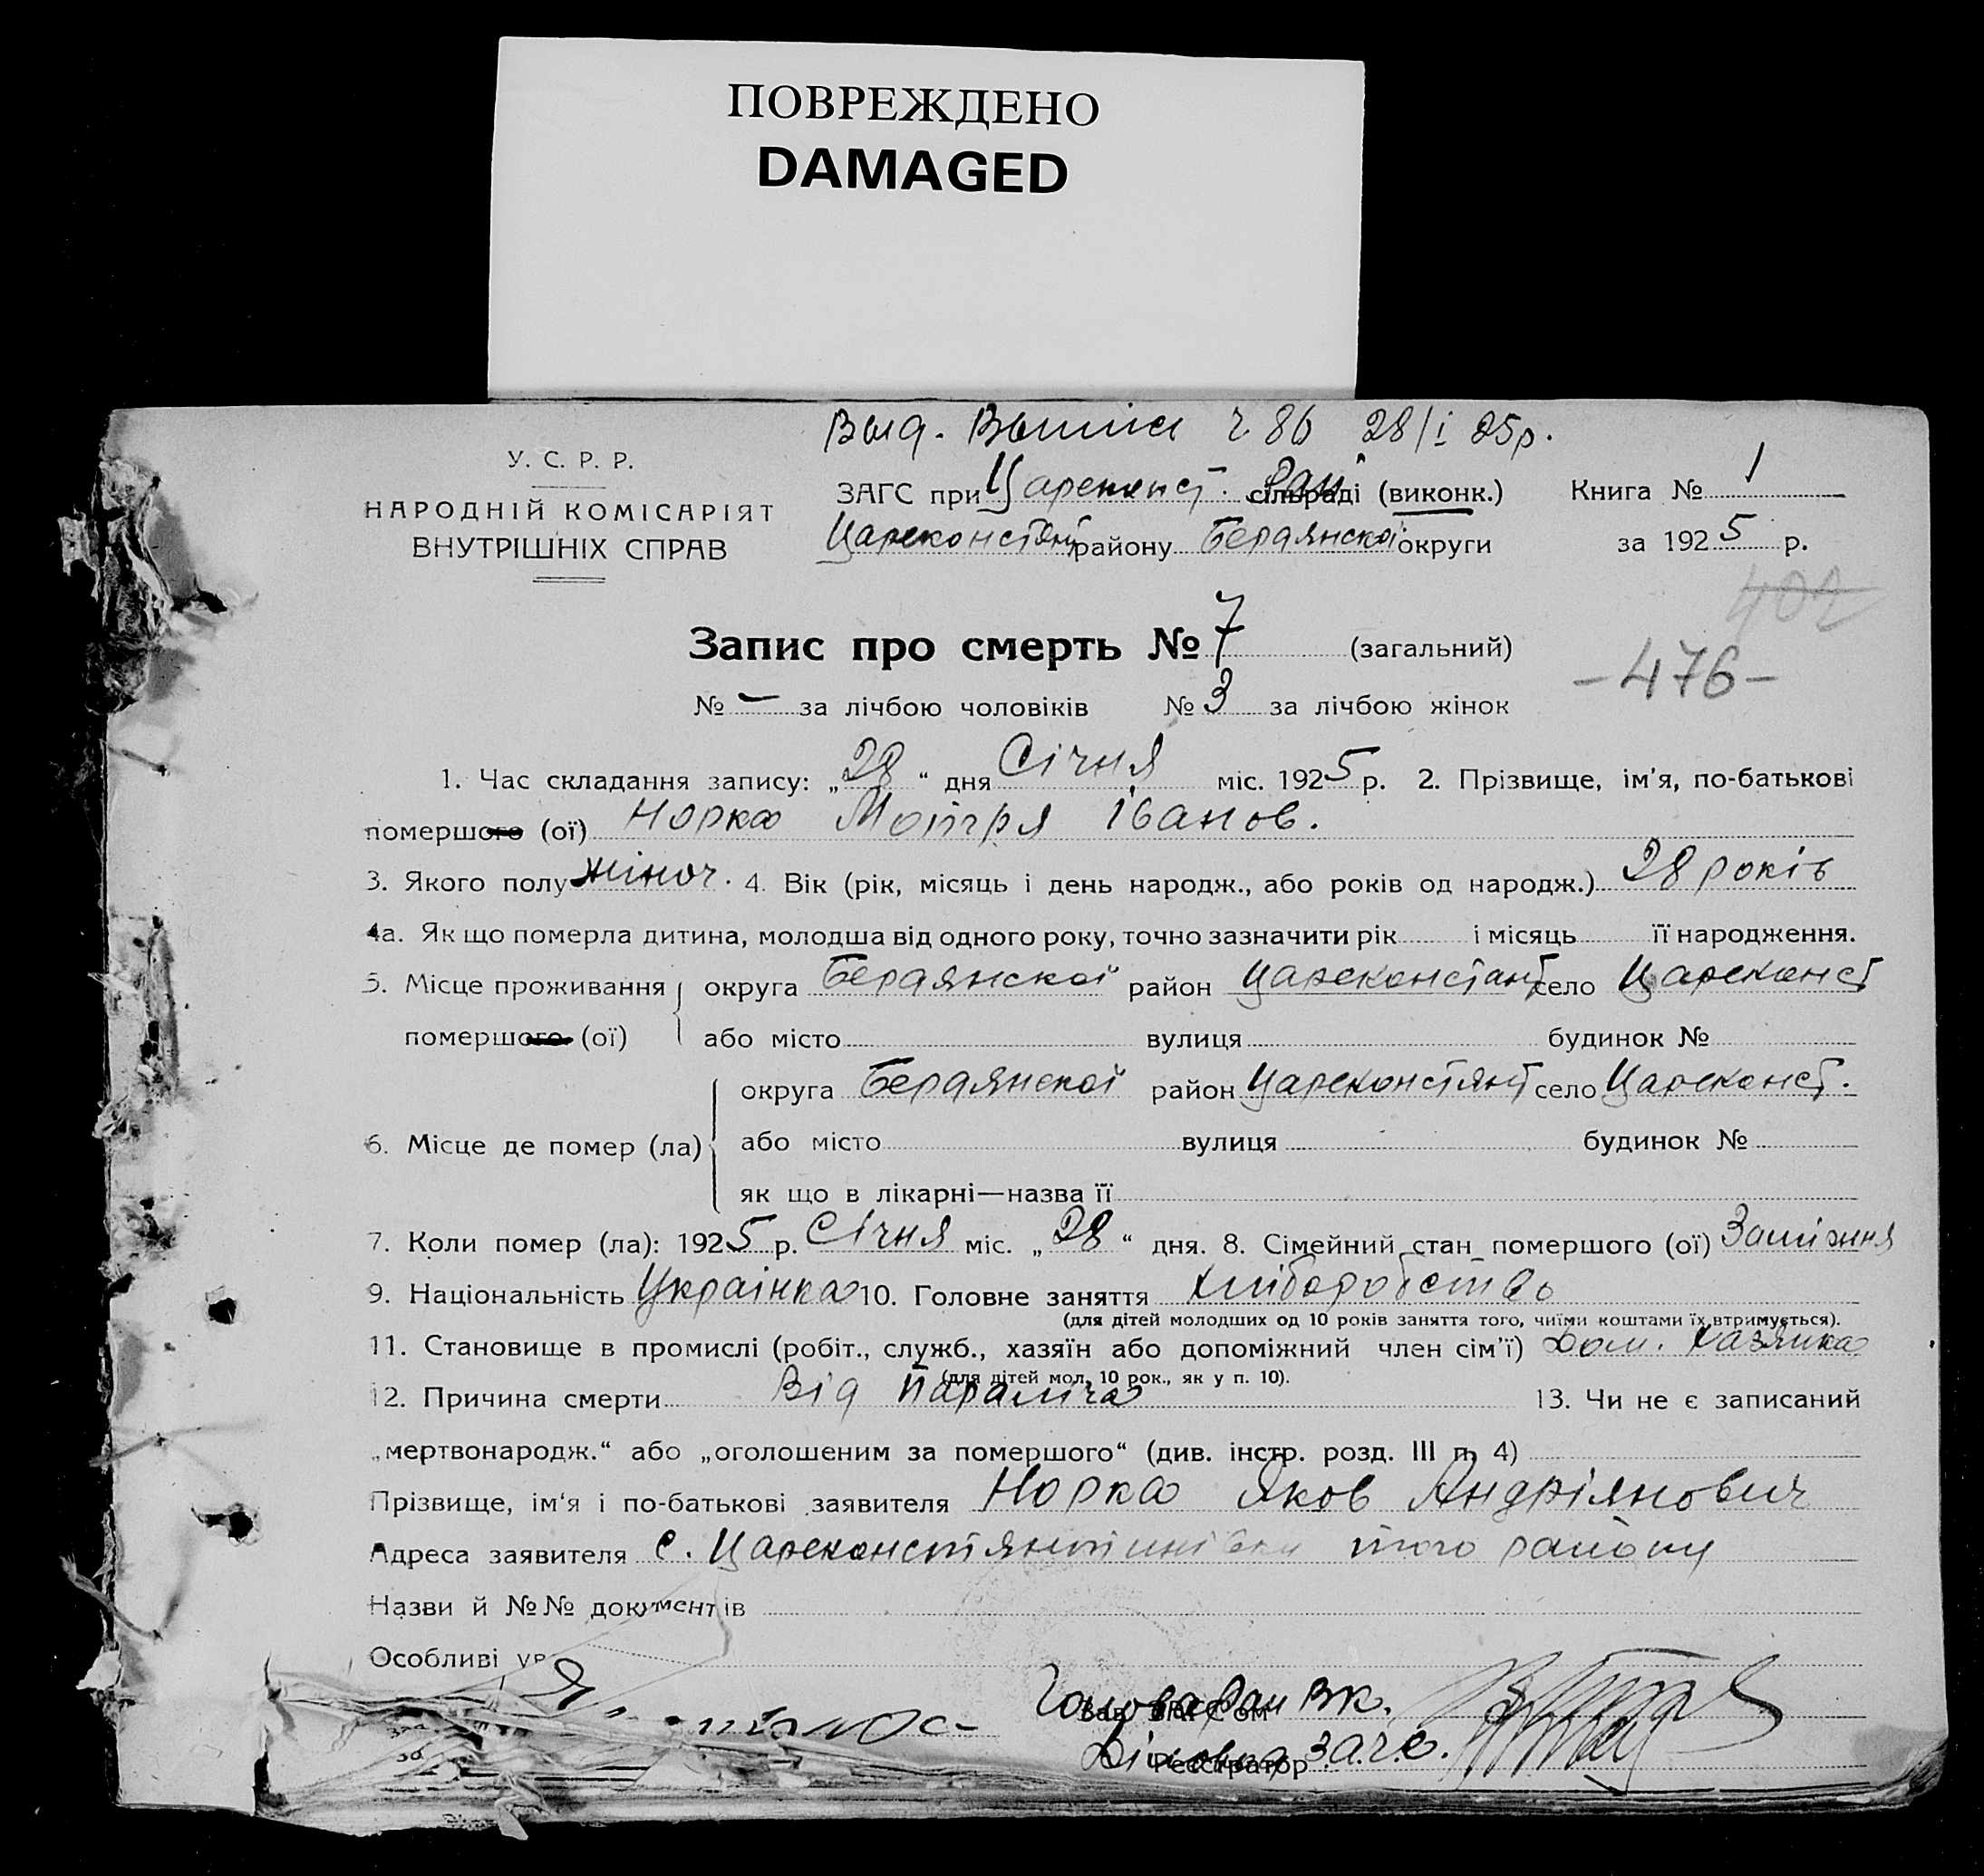 ПОВРЕЖДЕНО
DAMAGED
Выд. Выпис ч 86 28/I 25р.
У. С. Р. Р.
НАРОДНІЙ КОМІСАРІЯТ
ВНУТРІШНІХ СПРАВ
ЗАГС при Цареконст. Рай сільраді (виконк.) Книга № 1
Цареконстянт району Бердянскої округи за 1925 р.
402
Запис про смерть № 7 (загальний)
-476-
№ — за лічбою чоловіків № 3 за лічбою жінок
1. Час складання запису: „28“ дня Січня міс. 1925 р. 2. Прізвище, ім'я, по-батькові
помершого (ої) Норка Мотря Іванов.
3. Якого полу жіноч. 4. Вік (рік, місяць і день народж., або років од народж.) 28 років
4а. Як що померла дитина, молодша від одного року, точно зазначити рік і місяць її народження.
5. Місце проживання округа Бердянскої район Цареконстант село Цареконст
помершого (ої) або місто вулиця будинок №
округа Бердянскої район Цареконстянт село Цареконст.
6. Місце де помер (ла) або місто вулиця будинок №
як що в лікарні—назва її
7. Коли помер (ла): 1925 р. Січня міс. „28“ дня. 8. Сімейний стан помершого (ої) Заміжня
9. Національність Українка 10. Головне заняття Хліборобство
(для дітей молодших од 10 років заняття того, чиїми коштами їх втримується).
11. Становище в промислі (робіт., служб., хазяїн або допоміжний член сім'ї) Дом. Хазяйка
(для дітей мол. 10 рок., як у п. 10).
12. Причина смерти Від Параліча 13. Чи не є записаний
„мертвонародж.“ або „оголошеним за помершого“ (див. інстр. розд. III п. 4)
Прізвище, ім'я і по-батькові заявителя Норка Яков Андріянович
Адреса заявителя с. Цареконстянтинівки того району
Назви й №№ документів
Особливі
Голова Рай ВК.
Зав. ЗАГС'ом
Діловод Загс.
Реєстратор